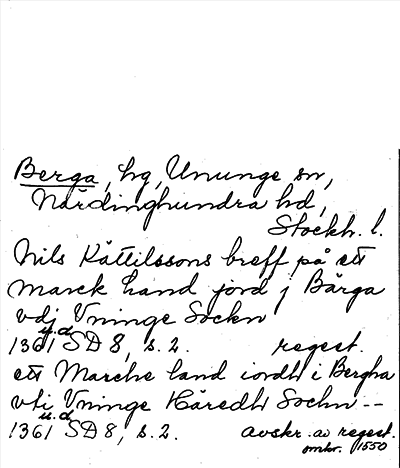 Berga, hg, Ununge sn,
Närdinghundra hd,
Stockh. l.
Nils Kättilssons breff på ett
marck land jord j Bärga
vdj Vninge Sockn
u.d.
1361 SD 8, s. 2. regest.
ett Marche land iordh i Bergha
vti Vninge Häredh Sochn --
u.d.
1361 SD 8, s. 2. avskr. av regest.
omkr. 1550